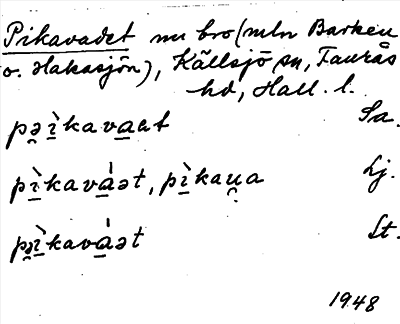 Pikavadet nu bro (mln Barken
o. Hakasjön), Källsjö sn, Faurås
hd, Hall. l.
pə̯ɪ̀kavaət Sa.
pɪ̀kavàət, pɪ̀kau̯a Lj.
pə̯ɪ̀kavàət St.
1948